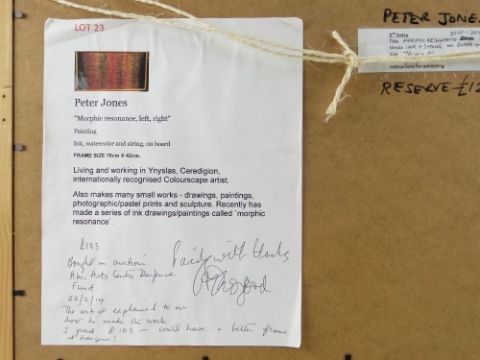 LOT 23
Peter Jones
"Morphic resonance, left, right"
Painting
Ink, watercolor and string, on board
FRAME SIZE 76cm X 42cm.
Living and working in Ynyslas, Ceredigion,
internationally recognised Colourscape artist.
Also makes many small works - drawings, paintings,
photographic/pastel prints and sculpture. Recently has
made a series of ink drawings/paintings called `morphic
resonance`.
£103
Bought in auction
Paid with thanks
Arts Centre
Fund
22/2/14
The artist explained to me
how he made the work
I paid £103 - could have a better frame
PETER JONES
MORPHIC RESONANCE
INK + STRING on
Instructions for exhibiting
RESERVE £12